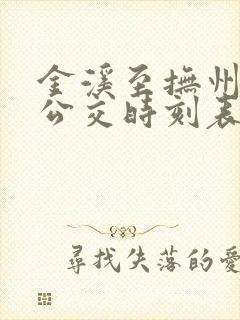 金溪至撫州
公交時刻表
尋找失落的愛